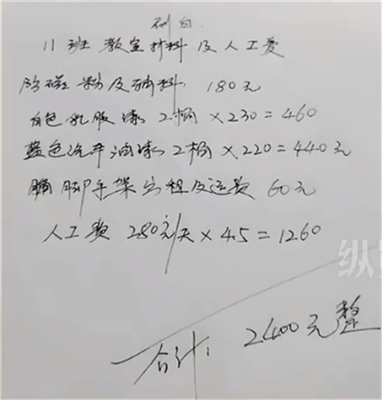 刷白
11班 教室材料及人工费
粉及辅料 180元
白色乳胶漆 2桶×230=460
蓝色 油漆 2桶×220=440元
脚手架出租及运费 60元
人工费 280元/天×4.5=1260
合计: 2400元整
纵